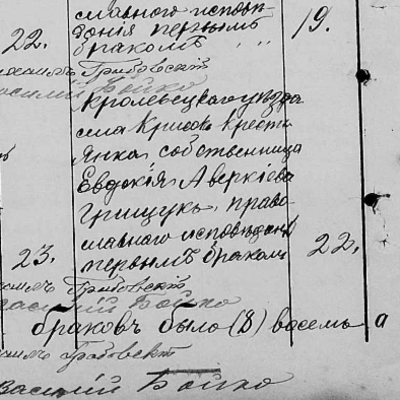 славнаго исповѣ-
22. данія первымъ 19.
бракомъ
Грабовскій
Василій Бойко
Кролевецкаго уѣзда
села
янка собственница
Евдокія Аверкіева
Грищукъ, право-
славнаго исповѣданія
23. первымъ бракомъ 22.
Грабовскій
Василій Бойко
браковъ было (8) восемь а
Грабовскій
Василій Бойко